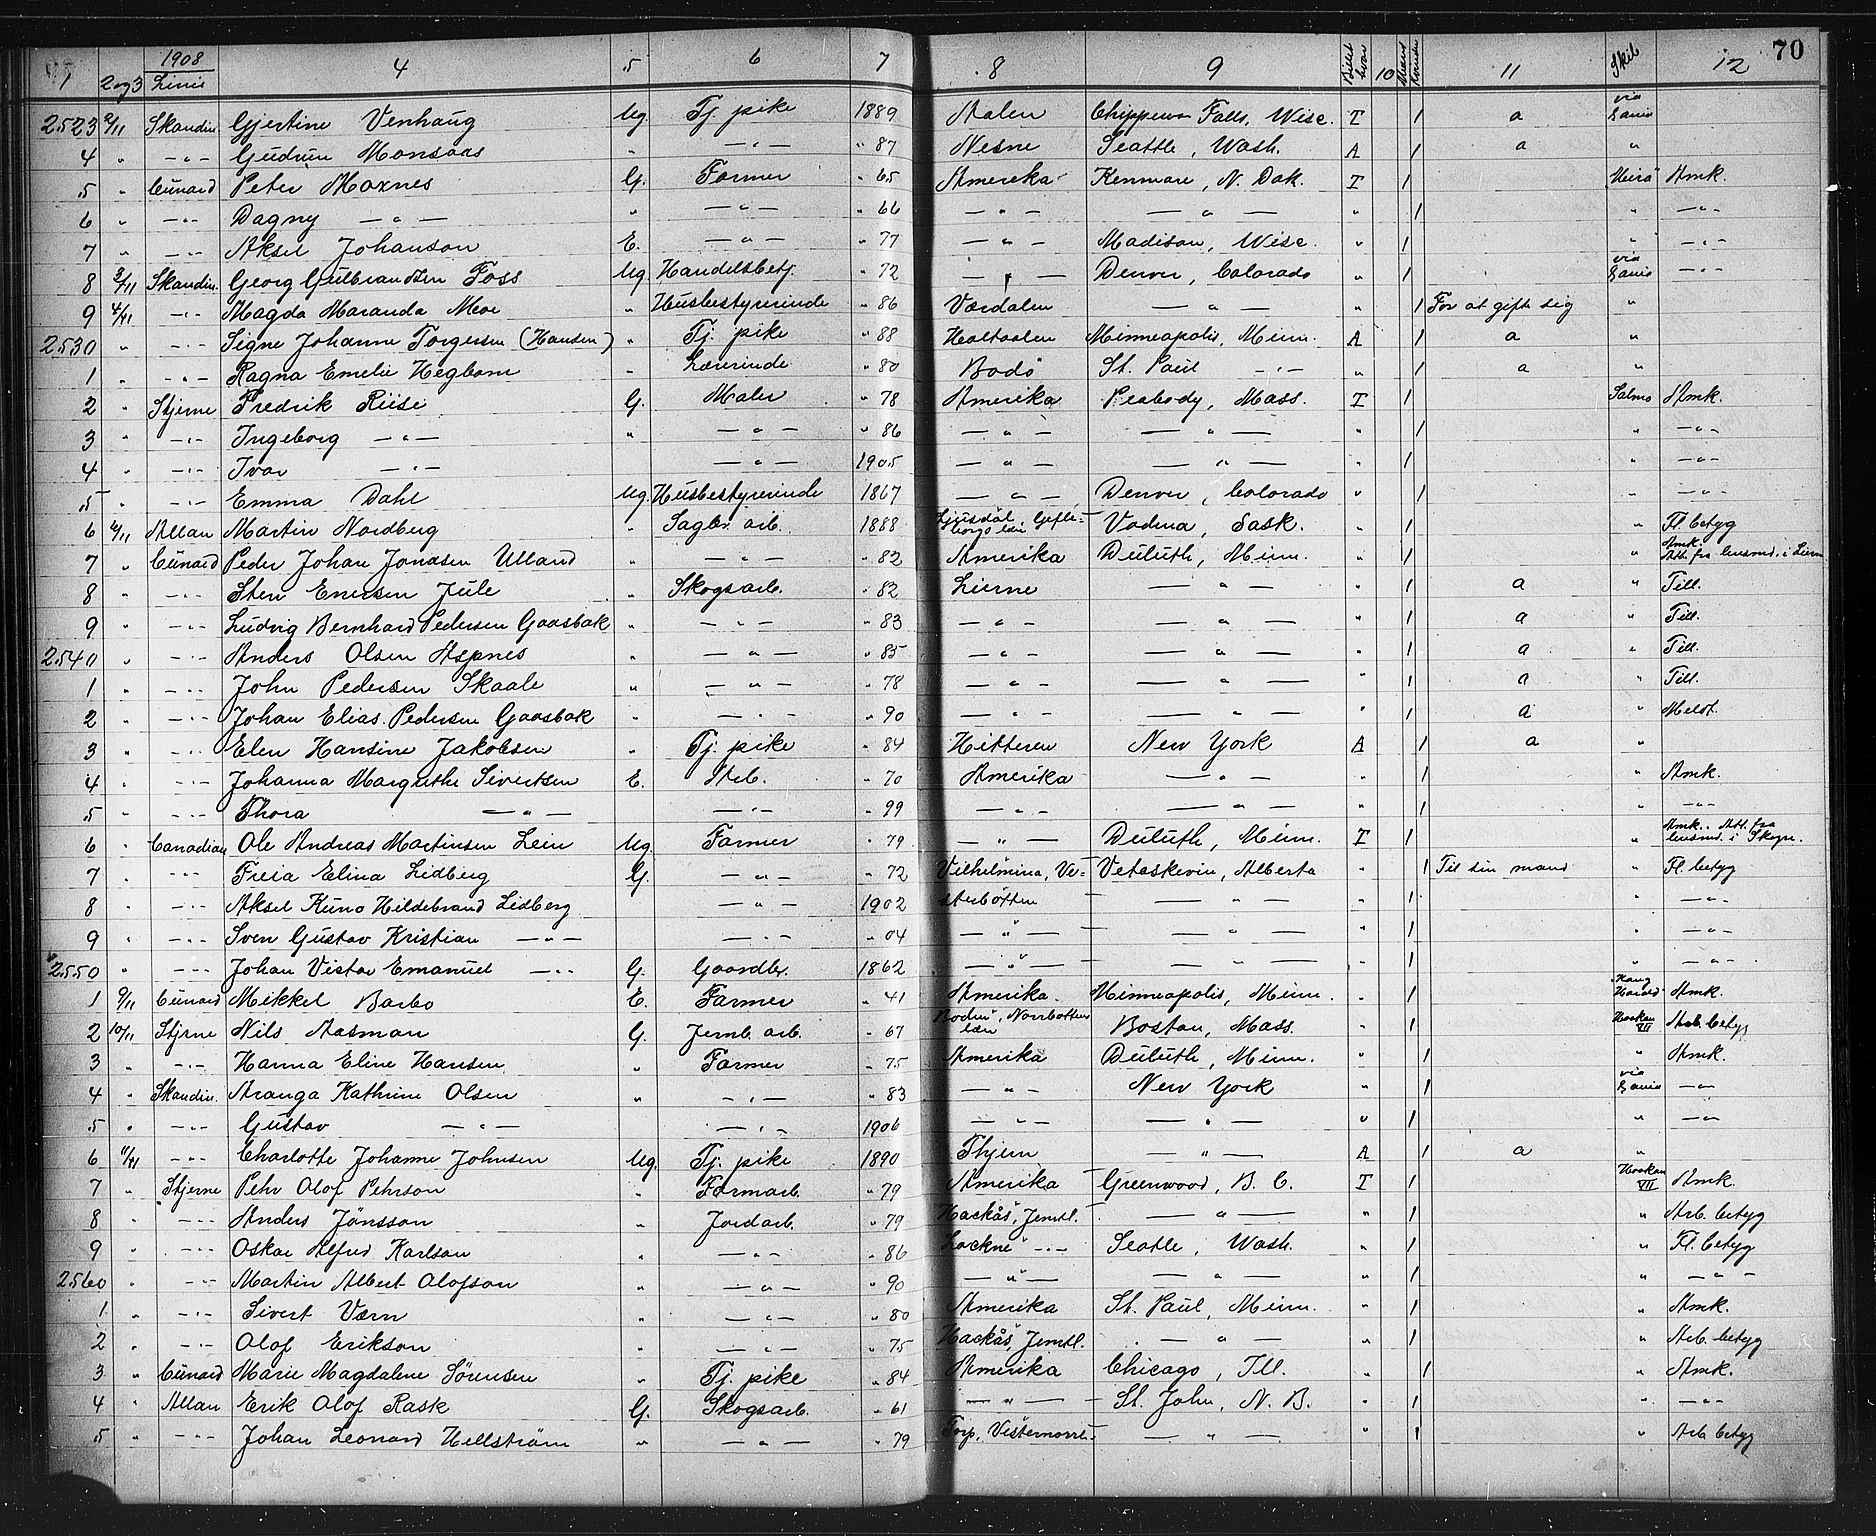 70
1908
1 2 og 3 Linie 4 5 6 7 8 9 Billet hvor 10 Mænd Kvinder 11 Skib 12
2523 2/11 Skandin. Gjertine Venhaug Ug. Tj. pike 1889 Aalen Chippewa Falls, Wisc. T 1 a via Hania
4 " -"- Gudrun Monsaas " -"- " 87 Nesne Seattle, Wash. A 1 a "
5 " Cunard Peter Moxnes G. Farmer " 65 Amerika Kenmare, N. Dak. T 1 Amk.
6 " -"- Dagny -"- " -"- " 66 -"- -"- " 1 " -"-
7 " -"- Aksel Johanson E. -"- " 77 -"- Madison, Wisc. " 1 " -"-
8 3/11 Skandin. Georg Gulbrandsen Foss Ug. Handelsbetj. " 72 -"- Denver, Colorado " 1 via -"-
9 4/11 -"- Magda Maranda Moe " Husbestyrerinde " 86 Værdalen -"- " 1 For at gifte sig "
2530 " -"- Signe Johanne Torgersen (Hansen) " Tj. pike " 88 Holtaalen Minneapolis, Minn. A 1 a "
1 " -"- Ragna Emelie Hegbom " Lærerinde " 80 Bodö St. Paul -"- " 1 a "
2 " Stjerne Fredrik Riise G. Maler " 78 Amerika Peabody, Mass. T 1 Salmo Amk.
3 " -"- Ingeborg -"- " -"- " 86 -"- -"- " 1 " -"-
4 " -"- Ivar -"- -"- 1905 -"- -"- " 1 " -"-
5 " -"- Emma Dahl Ug. Husbestyrerinde 1867 -"- Denver, Colorado " 1 " -"-
6 6/11 Allan Martin Nordberg " Sagbr. arb. 1888 Ljusdal, Gefleborgs län Vodena, Sask. " 1 " Fl. betyg
7 " Cunard Peder Johan Jonasen Ulland " -"- " 82 Amerika Duluth, Minn. " 1 " Amk. Att. fra lensmd. i Lierne
8 " -"- Sten Enersen Jule " Skogsarb. " 82 Lierne -"- " 1 a " Till.
9 " -"- Ludvig Bernhard Pedersen Gaasbak " -"- " 83 -"- -"- " 1 a " Till.
2540 " -"- Anders Olsen Aspnes " -"- " 85 -"- -"- " 1 a " Till.
1 " -"- John Pedersen Skaale " -"- " 78 -"- -"- " 1 a " Till.
2 " -"- Johan Elias Pedersen Gaasbak " -"- " 90 -"- -"- " 1 a " Meldt.
3 " -"- Elen Hansine Jakobsen " Tj. pike " 84 Hitteren New York A 1 a "
4 " -"- Johanna Margrethe Sivertsen E. Arb. " 70 Amerika -"- " 1 " Amk.
5 " -"- Thora -"- -"- " 99 -"- -"- " 1 " -"-
6 " Canadian Ole Andreas Martinsen Lein Ug. Farmer " 79 -"- Duluth, Minn. T 1 " Amk. Att. fra lensmd. i Skogn.
7 " -"- Freia Elina Lidberg G. -"- " 72 Vilhelmina, Ve- Vetaskevin, Alberta " 1 Til sin mand " Fl. betyg
8 " -"- Aksel Kuno Hildebrand Lidberg -"- 1902 sterbotten -"- " 1 " -"-
9 " -"- Sven Gustav Kristian -"- -"- " 04 -"- -"- " 1 " -"-
2550 " -"- Johan Victor Emanuel -"- G. Gaardbr. 1862 -"- -"- " 1 " -"-
1 9/11 Cunard Mikkel Barbo E. Farmer " 41 Amerika Minneapolis, Minn. " 1 Kong Harald Amk.
2 10/11 Stjerne Nils Aasman G. Jernb. arb. " 67 Boden, Norrbotten län Boston, Mass. " 1 Haakon VII Arb. betyg
3 " -"- Hanna Eline Hansen " Farmer " 75 Amerika Duluth, Minn. " 1 " Amk.
4 " Skandin. Aranga Kathrine Olsen " -"- " 83 -"- New York " 1 via -"-
5 " -"- Gustav -"- -"- 1906 -"- -"- " 1 " -"-
6 11/11 -"- Charlotte Johanne Johnsen Ug. Tj. pike 1890 Thjem -"- A 1 a "
7 " Stjerne Pehr Olof Pehrson " Farmarb. " 79 Amerika Greenwood, B. C. T 1 Haakon VII Amk.
8 " -"- Anders Jönsson " Jordarb. " 79 Hackås, Jemtl. -"- " 1 " Arb. betyg
9 " -"- Oskar Alfred Karlson " -"- " 86 Lockne -"- Seatle, Wash. " 1 " Fl. betyg
2560 " -"- Martin Albert Olofson " -"- " 90 -"- -"- " 1 " -"-
1 " -"- Sivert Værn " -"- " 80 Amerika St. Paul, Minn. " 1 " Amk.
2 " -"- Olof Erikson " -"- " 75 Hackås, Jemtl. -"- " 1 " Arb. betyg
3 " Cunard Marie Magdalene Sörensen " Tj. pike " 84 Amerika Chicago, Ill. " 1 " Amk.
4 " Allan Erik Olof Rask G. Skogsarb. " 61 -"- St. John, N. B. " 1 " -"-
5 " -"- Johan Leonard Hellström " -"- " 79 Torp, Vesternorrl. -"- " 1 " Arb. betyg